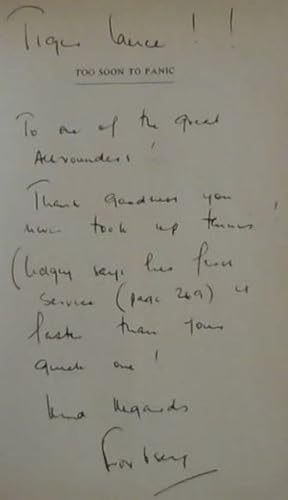 Tiger Lance ! !
TOO SOON TO PANIC
To one of the great
Allrounders !
Thank goodness you
never took up tennis !
(Hodgey says his first
service (page 269) is
faster than your
quick one !
Kind Regards